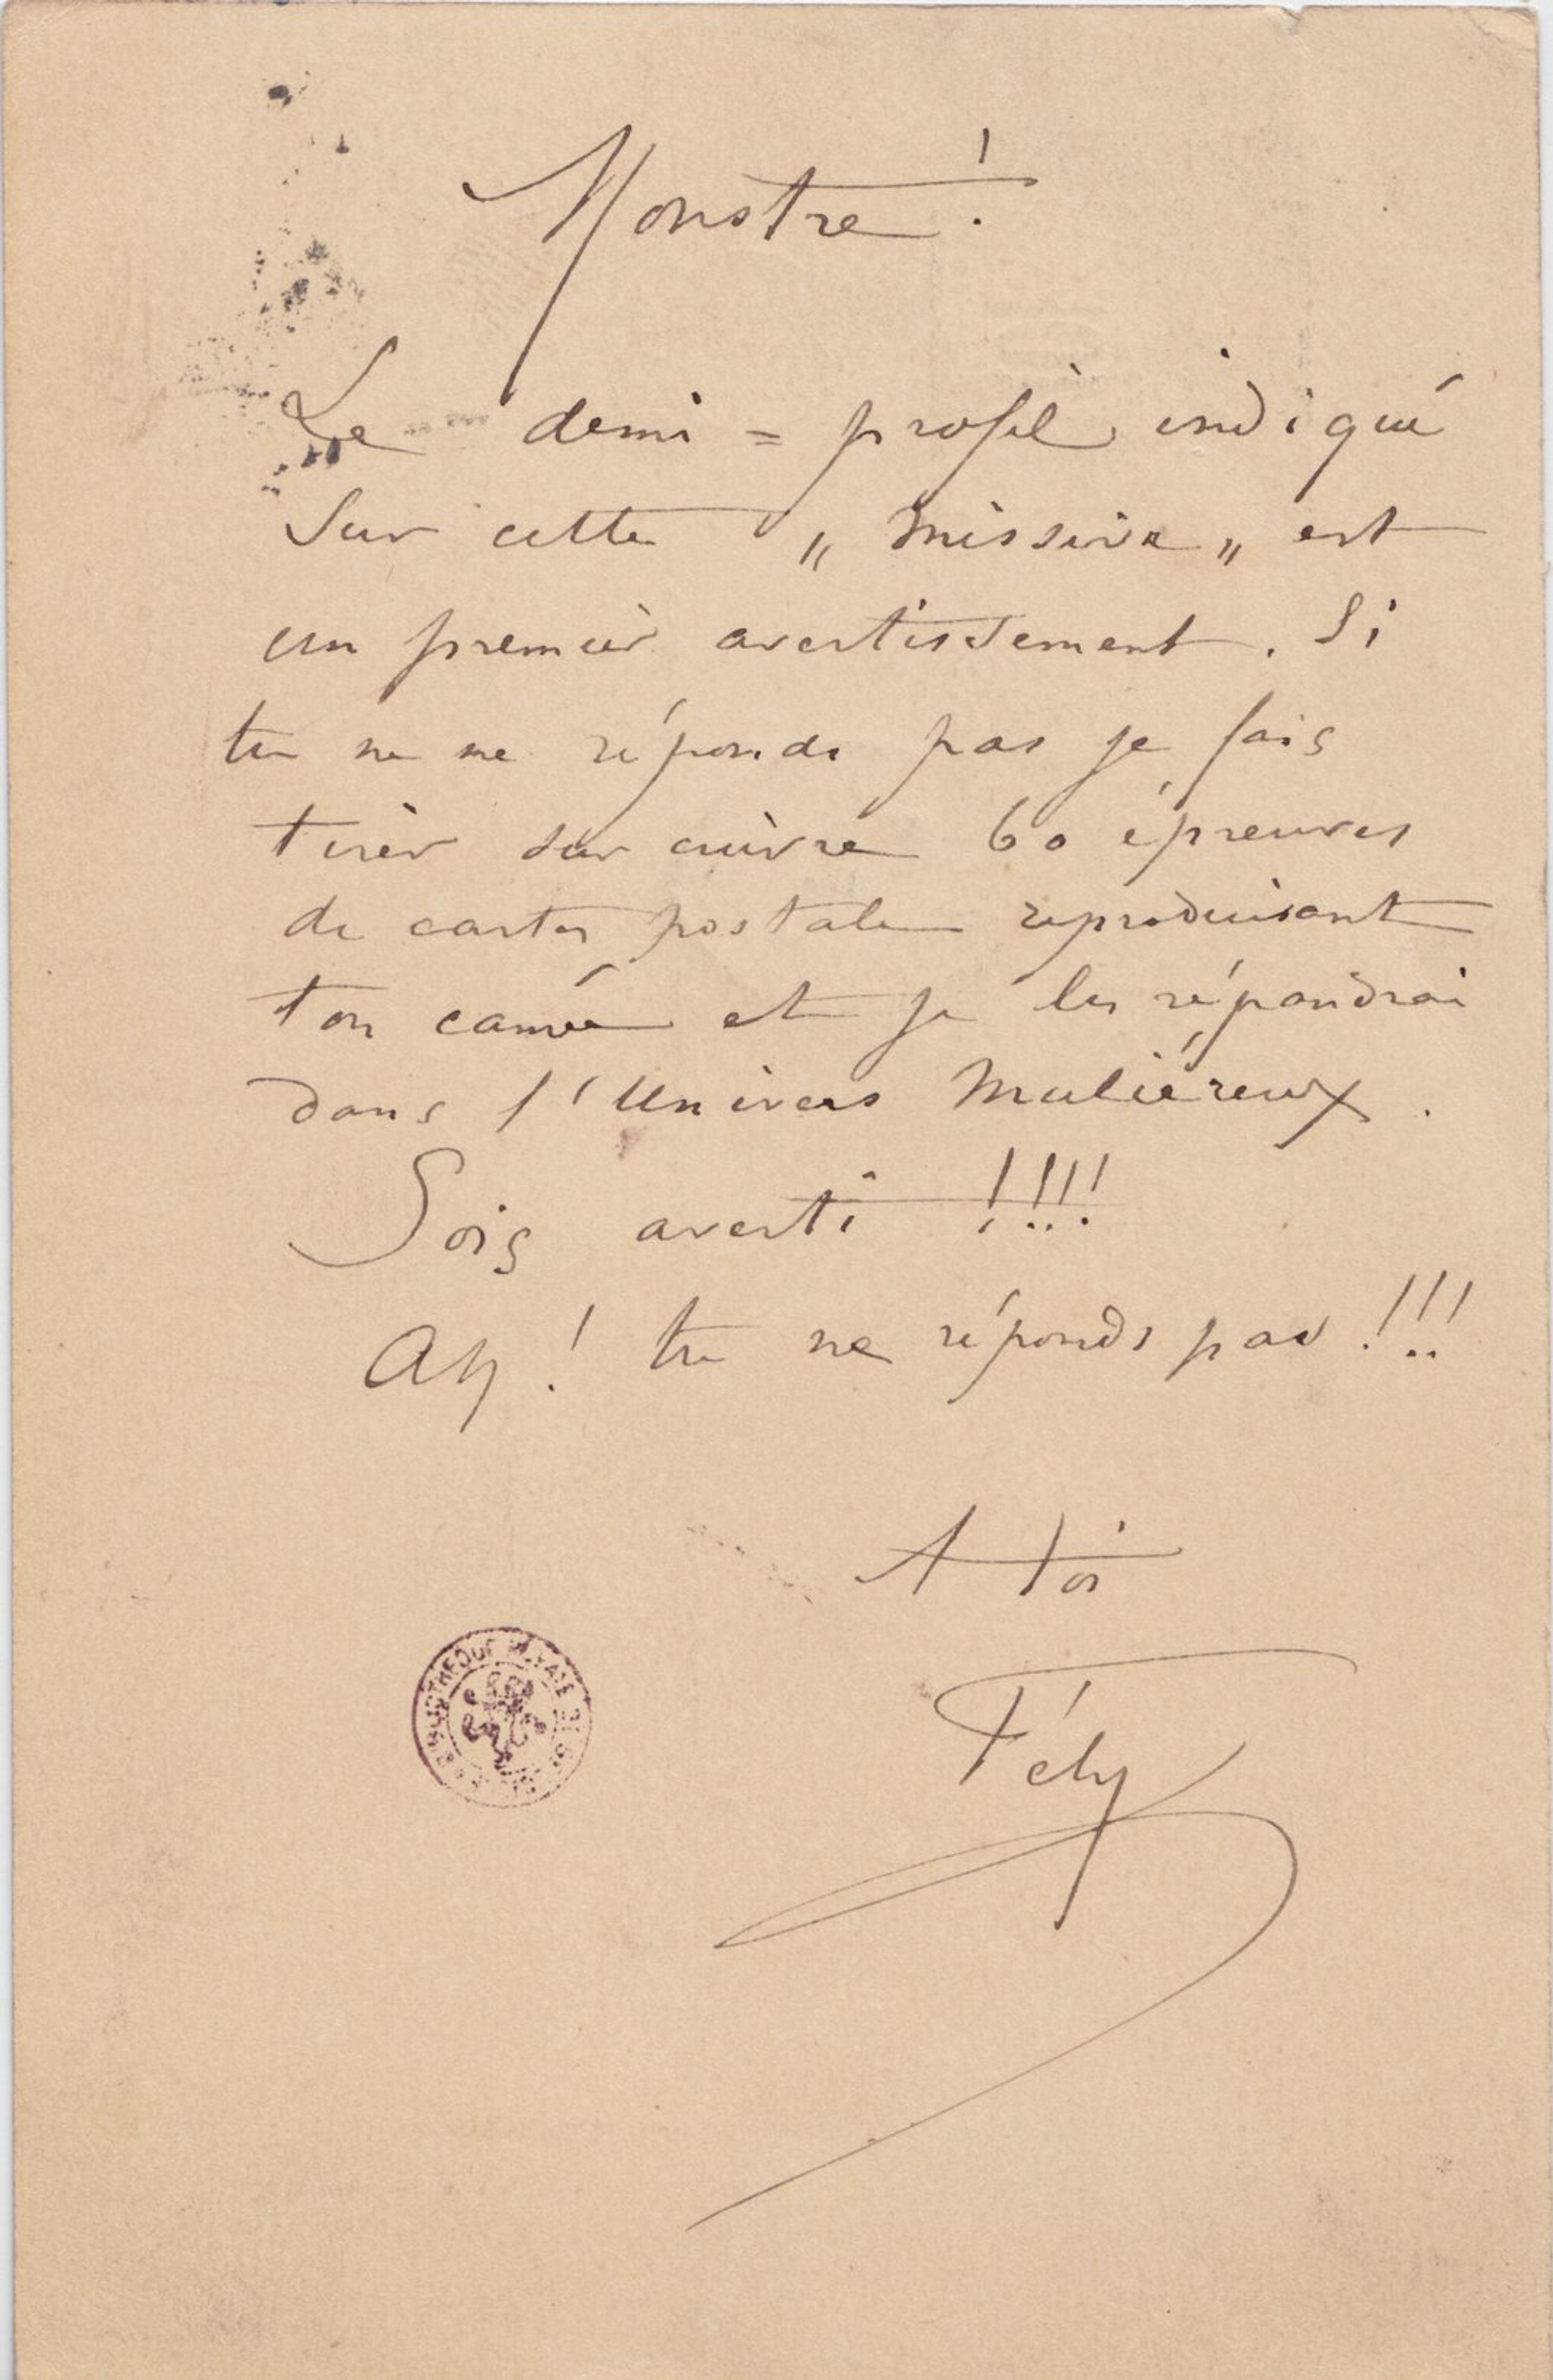 Monstre !
Le demi = profil indiqué
Sur cette „ missive „ est
un premier avertissement. Si
tu ne me réponds pas je fais
tirer sur cuivre 60 épreuves
de cartes postales reproduisant
ton camée et je les répandrai
dans l'Univers Muliéreux.
Sois averti !!!!
Ah ! tu ne réponds pas !!!
A toi
Fély
BIBLIOTHEQUE ROYALE DE